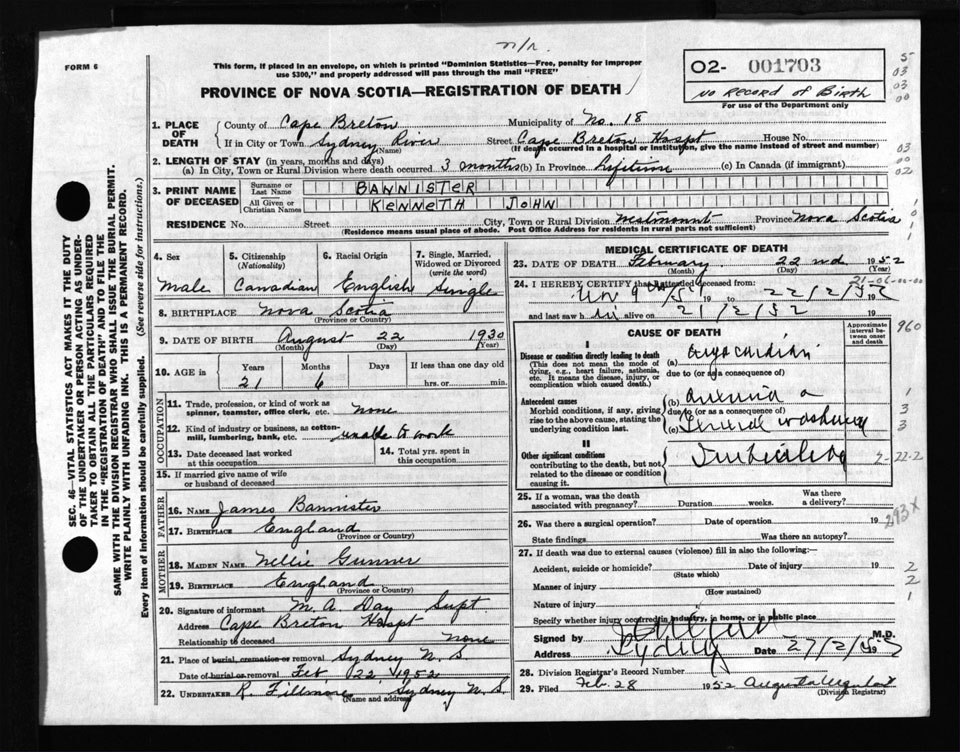 n/r.
FORM 6
This form, if placed in an envelope, on which is printed "Dominion Statistics—Free, penalty for improper
use $300," and properly addressed will pass through the mail "FREE"
PROVINCE OF NOVA SCOTIA—REGISTRATION OF DEATH
02- 001703
No Record of Birth
For use of the Department only
5
03
03
00
SEC. 46—VITAL STATISTICS ACT MAKES IT THE DUTY
OF THE UNDERTAKER OR PERSON ACTING AS UNDER-
TAKER TO OBTAIN ALL THE PARTICULARS REQUIRED
IN THE "REGISTRATION OF DEATH" AND TO FILE THE
SAME WITH THE DIVISION REGISTRAR WHO SHALL ISSUE THE BURIAL PERMIT.
WRITE PLAINLY WITH UNFADING INK. THIS IS A PERMANENT RECORD.
Every item of information should be carefully supplied. (See reverse side for instructions.)
1. PLACE OF DEATH County of Cape Breton Municipality of No. 18
If in City or Town Sydney River Street Cape Breton Hospt House No.
(Name) (If death occurred in a hospital or institution, give the name instead of street and number)
03
00
02
2. LENGTH OF STAY (in years, months and days)
(a) In City, Town or Rural Division where death occurred 3 months (b) In Province Lifetime (c) In Canada (if immigrant)
3. PRINT NAME OF DECEASED Surname or Last Name BANNISTER
All Given or Christian Names KENNETH JOHN
RESIDENCE No. Street City, Town or Rural Division Westmount Province Nova Scotia
(Residence means usual place of abode. Post Office Address for residents in rural parts not sufficient)
4. Sex 5. Citizenship (Nationality) 6. Racial Origin 7. Single, Married, Widowed or Divorced (write the word)
Male Canadian English Single
8. BIRTHPLACE Nova Scotia
(Province or Country)
9. DATE OF BIRTH August 22 1930
(Month) (Day) (Year)
10. AGE in Years Months Days If less than one day old
21 6 hrs. or min.
OCCUPATION
11. Trade, profession, or kind of work as
spinner, teamster, office clerk, etc. none
12. Kind of industry or business, as cotton-
mill, lumbering, bank, etc. unable to work
13. Date deceased last worked
at this occupation
14. Total yrs. spent in
this occupation
15. If married give name of wife
or husband of deceased
FATHER
16. NAME James Bannister
17. BIRTHPLACE England
(Province or Country)
MOTHER
18. MAIDEN NAME Nellie Gunner
19. BIRTHPLACE England
(Province or Country)
20. Signature of informant M. A. Day Supt.
Address Cape Breton Hospt
Relationship to deceased None
21. Place of burial, cremation or removal Sydney N. S.
Date of burial or removal Feb. 22, 1952
22. UNDERTAKER R. Fillmore, Sydney N. S.
(Name and address)
MEDICAL CERTIFICATE OF DEATH
23. DATE OF DEATH February 22nd 1952
(Month) (Day) (Year)
24. I HEREBY CERTIFY that I attended deceased from:
21-06-00-00
19 to 22/2/52 19
and last saw h alive on 21/2/52 19
CAUSE OF DEATH
Approximate interval between onset and death
960
I
Disease or condition directly leading to death
(This does not mean the mode of
dying, e.g., heart failure, asthenia,
etc. It means the disease, injury, or
complication which caused death.)
(a)
due to (or as a consequence of)
Antecedent causes
Morbid conditions, if any, giving
rise to the above cause, stating the
underlying condition last.
(b)
due to (or as a consequence of)
(c)
1
3
3
II
Other significant conditions
contributing to the death, but not
related to the disease or condition
causing it.
2-22-2
25. If a woman, was the death
associated with pregnancy? Duration weeks. Was there
a delivery?
26. Was there a surgical operation? Date of operation 19
State findings Was there an autopsy?
293x
27. If death was due to external causes (violence) fill in also the following:—
Accident, suicide or homicide? Date of injury 19
(State which)
Manner of injury
(How sustained)
Nature of injury
Specify whether injury occurred in industry, in home, or in public place
2
2
1
Signed by M.D.
Address Sydney Date 27/2/52 19
28. Division Registrar's Record Number
29. Filed Feb. 28 1952
(Division Registrar)